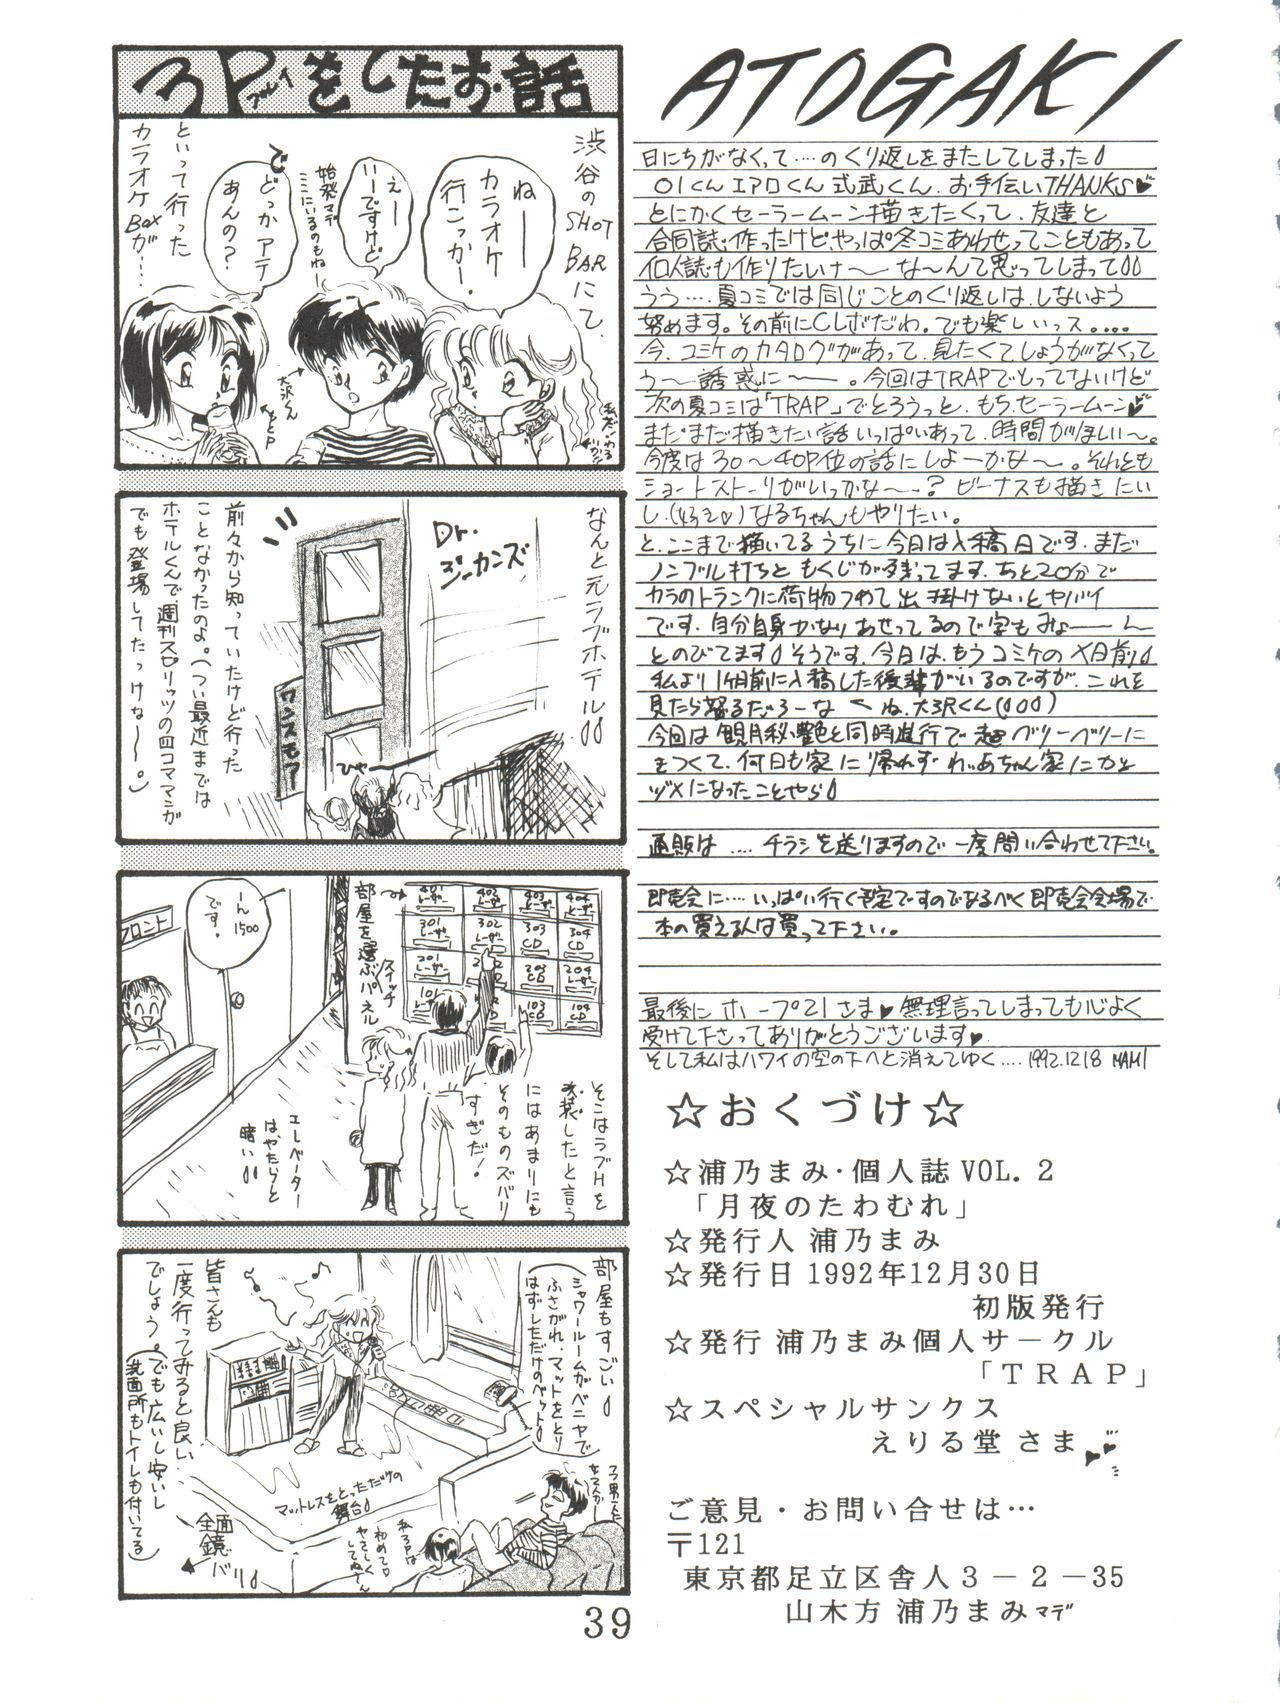 3Pプレイをしたお話
渋谷の
SHOT
BARにて、
ねー
カラオケ
行こっか!
えー
いーですけど
始発マデ
ここにいるのもねー
でどっかアテ
あんの?
といって行った
カラオケ
Boxが…
大沢くん
なんと元ラブホテル
Dr.
ジーカンズ
ワンスモア
ひゃー
前々から知っていたけど行った
ことなかったのよ。(つい最近までは
ホテルくんで週刊スピリッツの四コママンガ
でも登場してたっけな〜。)
部屋を選ぶパネル
スイッチ
401
レーザー
402
レーザー
403
レーザー
404
レーザー
301
レーザー
302
レーザー
303
CD
304
CD
201
レーザー
203
CD
204
レーザー
101
レーザー
103
CD
104
CD
フロント
一人
1500
です。
エレベーター
は、やたらと
暗い
そこはラブHを
改装したと言う
にはあまりにも
そのものズバリ
すぎだ!
部屋もすごい
シャワールームがベニヤで
ふさがれ、マットをとり
はずしただけのベット
マットレスをとっただけの
舞台
全面
鏡
バリ
皆さんも
一度行ってみると良い
でしょう。(でも広いし安いし
洗面所もトイレも付いてる)
39
ATOGAKI
日にちがなくって…のくり返しをまたしてしまった
OIくん エアロくん 式武くん、お手伝いTHANKS♥
とにかくセーラームーン描きたくって、友達と
合同誌作ったけどやっぱ冬コミあわせってこともあって
個人誌も作りたいナ〜な〜んて思ってしまって
うう…夏コミでは同じことのくり返しは、しないよう
努めます。その前にCレボだわ。でも楽しいっス。…
今、コミケのカタログがあって、見たくてしょうがなくって
う〜誘惑に〜。今回はTRAPでとってないけど
次の夏コミは「TRAP」でとろうっと、もち、セーラームーン♥
まだまだ描きたい話いっぱいあって、時間がほしい〜。
今度は30〜40P位の話にしよーかな〜。それとも
ショートストーリがいっかな〜?ビーナスも描きたい
し、なるちゃんもやりたい。
と、ここまで描いてるうちに今日は入稿日です。まだ
ノンブル打ちともくじが残ってます、あと20分で
カラのトランクに荷物つめて出掛けないとヤバイ
です、自分自身かなりあせってるので字もみょーーん
とのびてます そうです、今日は、もうコミケの×日前
私より1ヶ月前に入稿した後輩がいるのですが、これを
見たら怒るだろーな〜ね、大沢くん
今回は観月秘艶と同時進行で超ベリーベリーに
きつくて、何日も家に帰れずれぃあちゃん家にカン
ヅメになったことやら
通販は…チラシを送りますので一度問い合わせて下さい。
即売会に…いっぱい行く予定ですのでなるべく即売会会場で
本の買える人は買って下さい。
最後にホープ21さま♥無理言ってしまっても心よく
受けて下さってありがとうございます♥
そして私はハワイの空の下へと消えてゆく…1992.12.18 MAMI
☆おくづけ☆
☆浦乃まみ・個人誌VOL.2
「月夜のたわむれ」
☆発行人 浦乃まみ
☆発行日 1992年12月30日
初版発行
☆発行 浦乃まみ個人サークル
「TRAP」
☆スペシャルサンクス
えりる堂 さま
ご意見・お問い合せは…
〒121
東京都足立区舎人3-2-35
山木方 浦乃まみマデ